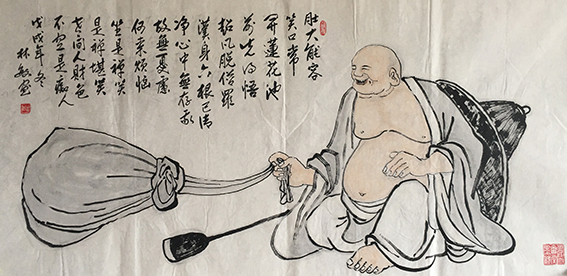 肚大能容
笑口常
开莲花池
前坐得悟
超凡脱俗罪
汉身六根已清
净心中無存私
故無憂慮
何来烦恼
坐是禅笑
是禅堪笑
世间人财色
不空是痴人
戊戌年冬
林